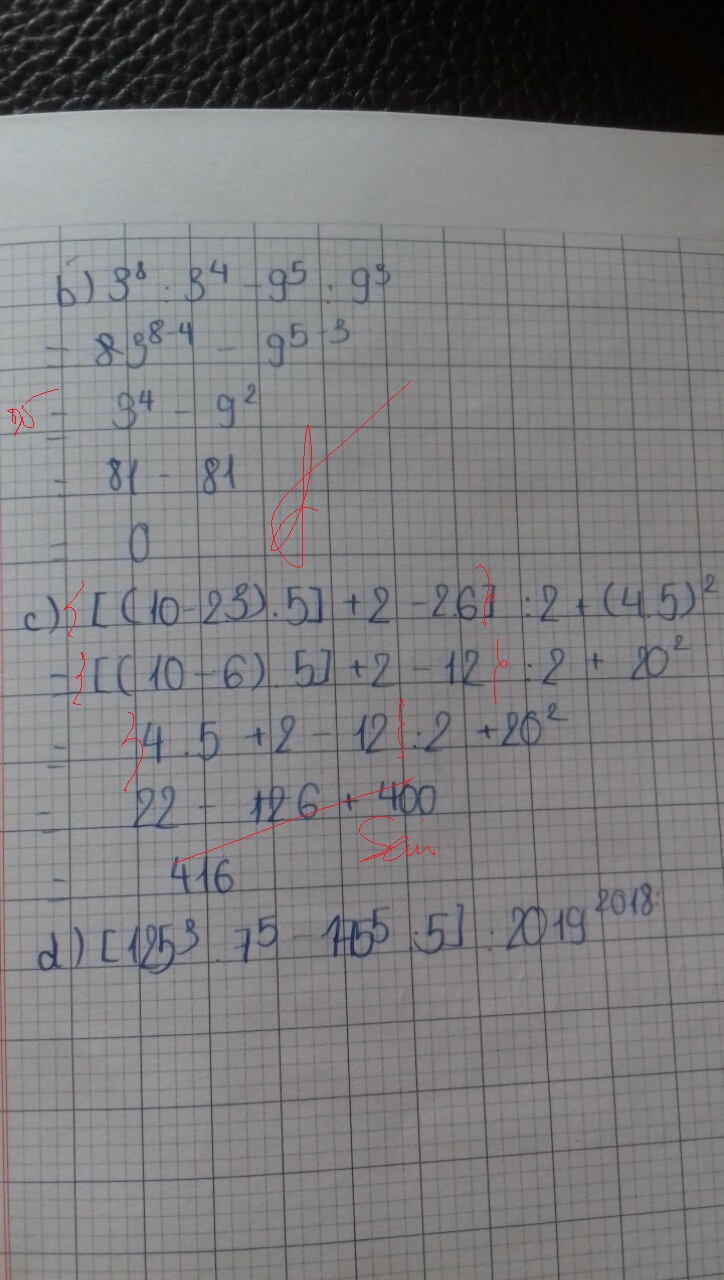 b) 3⁸ : 3⁴ - 9⁵ : 9³
= 3⁸⁻⁴ - 9⁵⁻³
= 3⁴ - 9²
= 81 - 81
= 0
c) { [(10 - 2.3) . 5] + 2 - 2.6 } : 2 + (4.5)²
= { [(10 - 6) . 5] + 2 - 12 } : 2 + 20²
= } 4 . 5 + 2 - 12 { : 2 + 20²
= 22 - 6 + 400
Sai
= 416
d) [125³ . 7⁵ - 175⁵ : 5] : 2019²⁰¹⁸